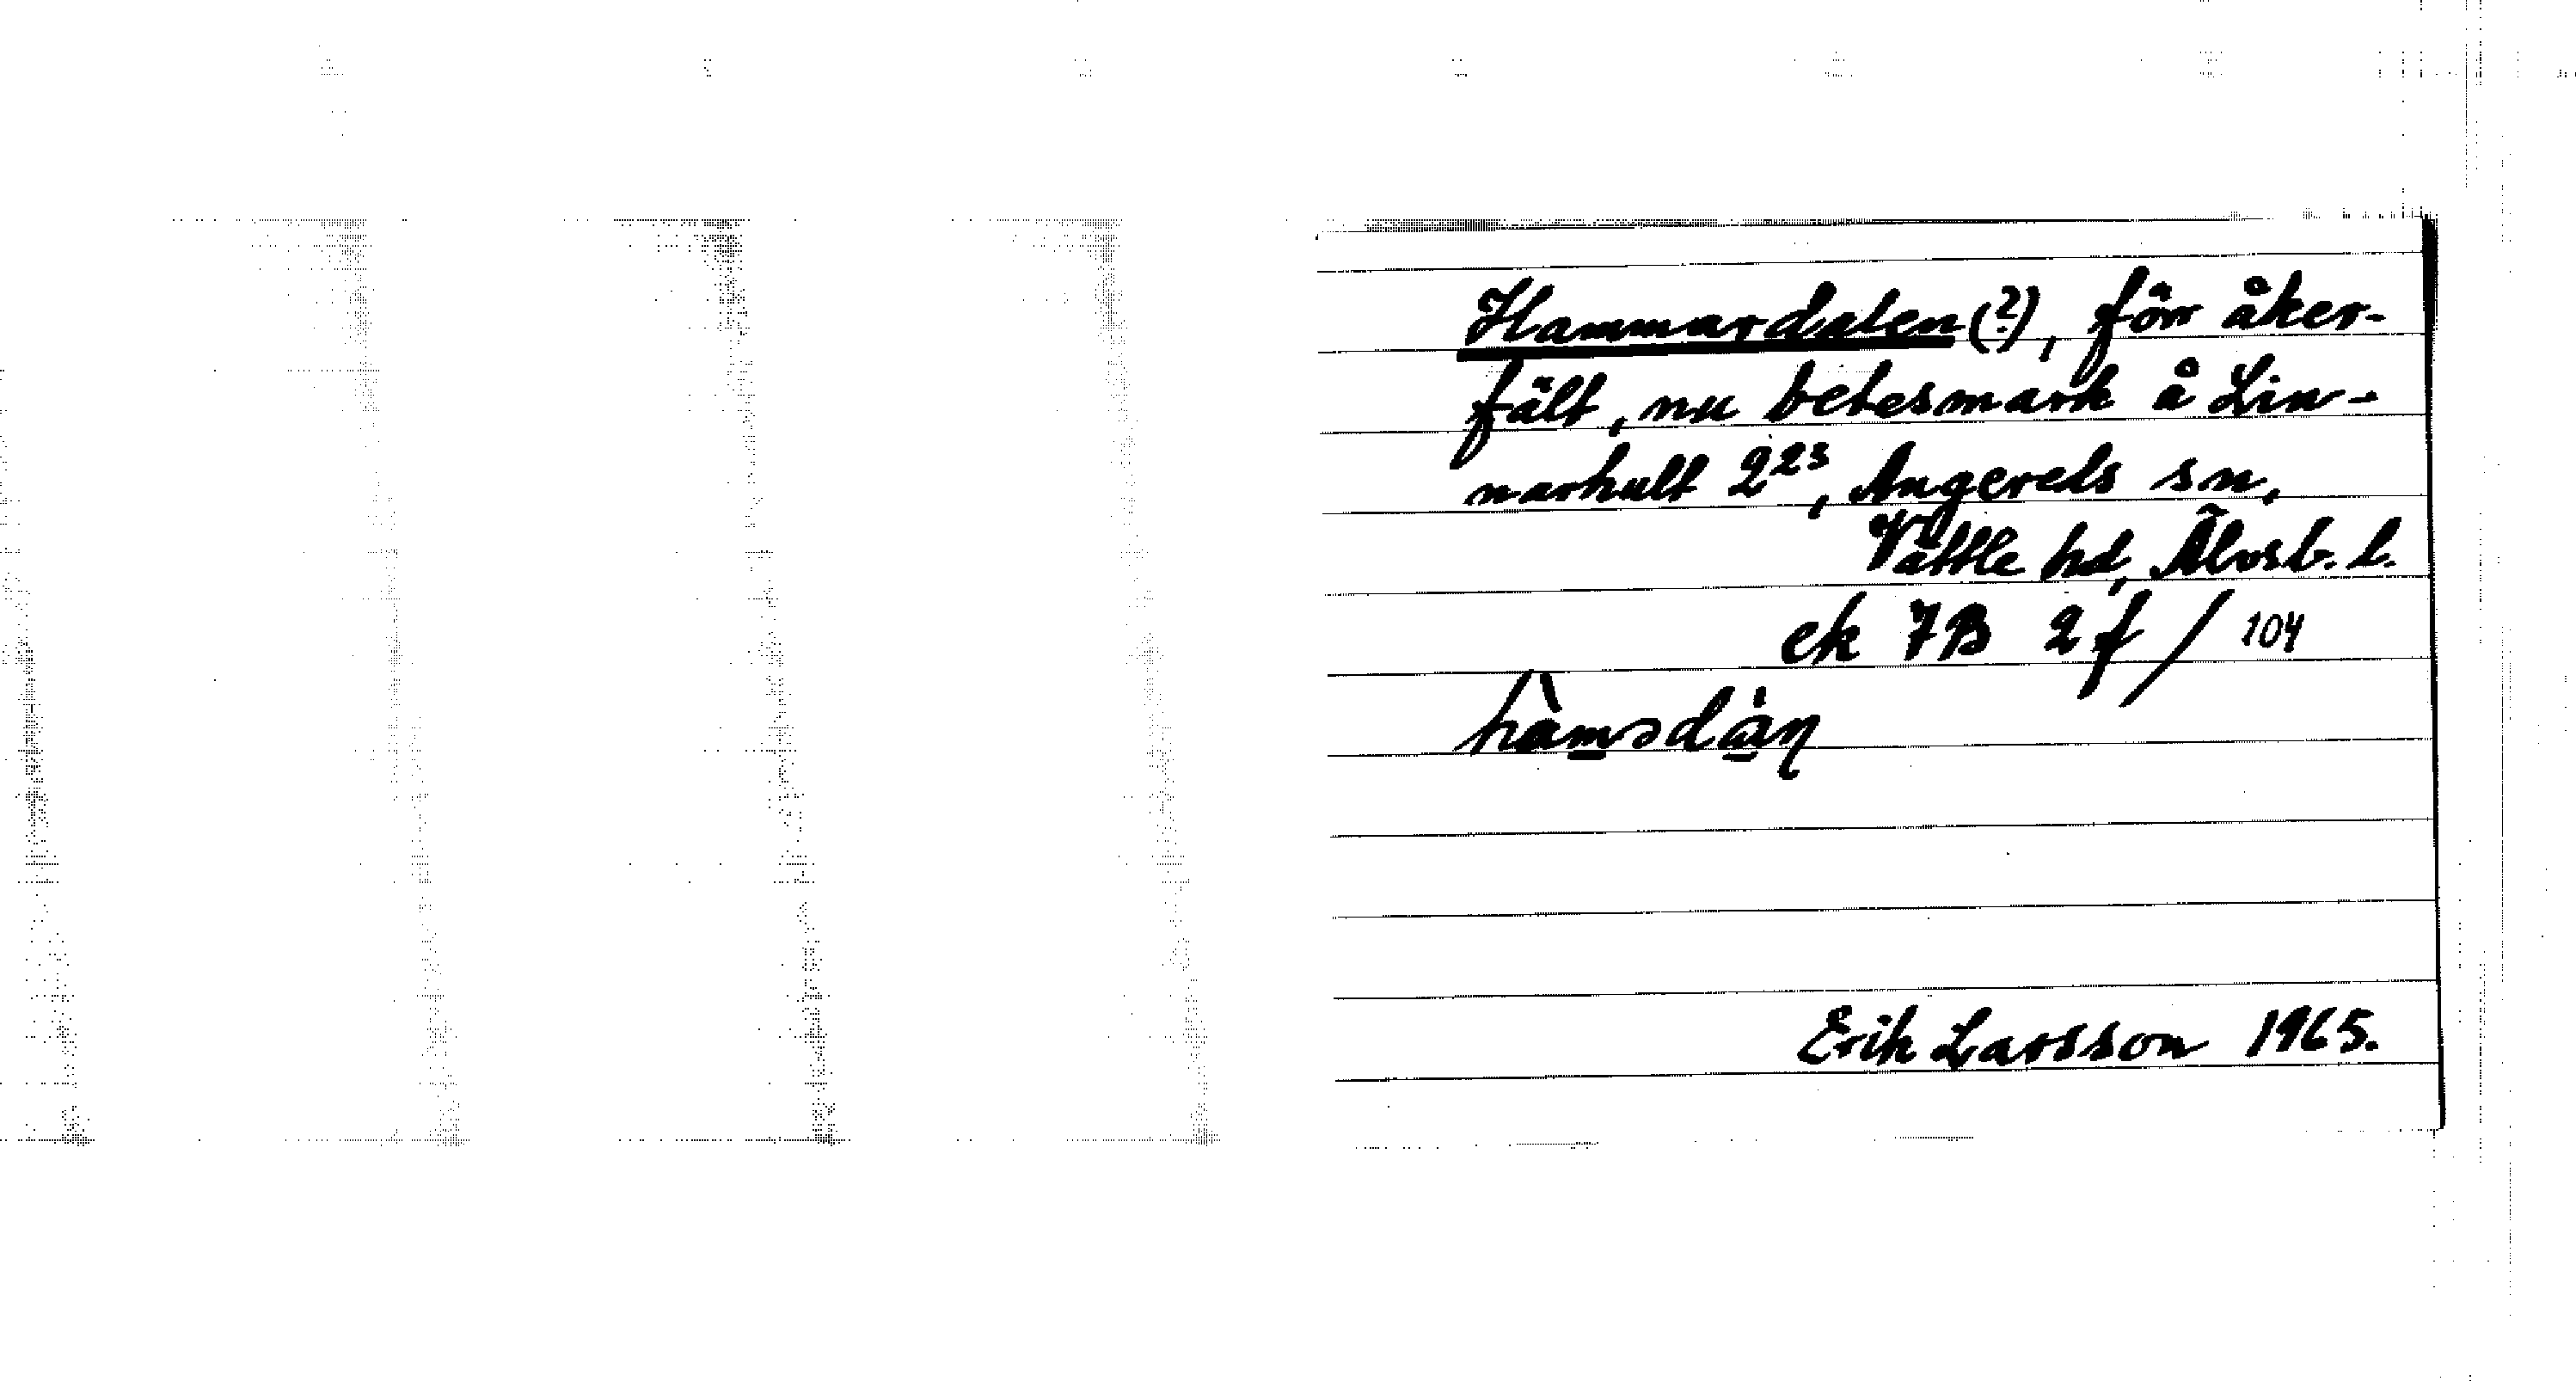 Hammardalen(?), förr åker-
fält, nu betesmark å Lin-
narhult 2²³, Angereds sn,
Vättle hd, Älvsb. l.
ek 7B 2f / 104
hàmədàņ
Erik Larsson 1965.